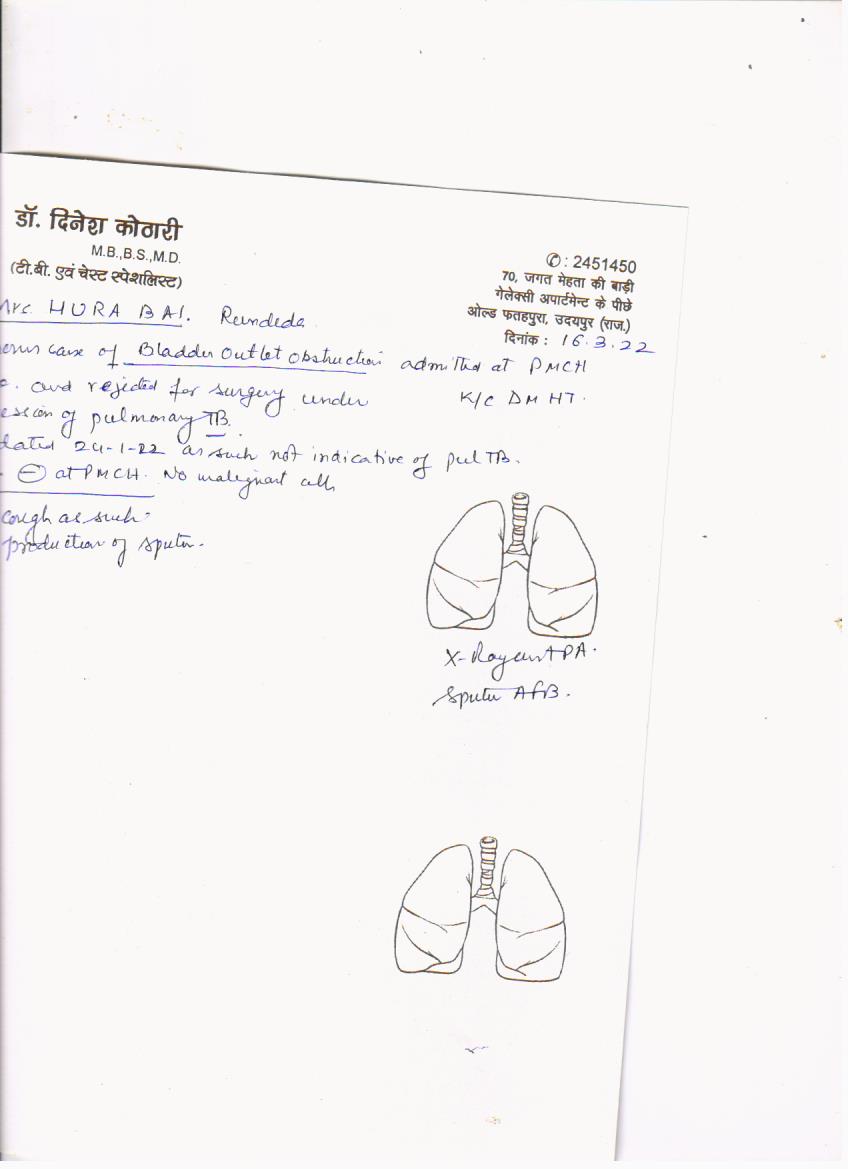 डॉ. दिनेश कोठारी
M.B.,B.S.,M.D.
(टी.बी. एवं चेस्ट स्पेशलिस्ट)
✆ : 2451450
70, जगत मेहता की बाड़ी
गेलेक्सी अपार्टमेन्ट के पीछे
ओल्ड फतहपुरा, उदयपुर (राज.)
दिनांक : 16.3.22
HURA BAI. Rundeda
case of Bladder Outlet Obstruction admitted at PMCH
and rejected for surgery under K/C DM HT.
of pulmonary TB.
dated 24-1-22 as such not indicative of pul TB.
⊖ at PMCH. No malignant cells
cough as such.
production of sputum.
X-Ray chest PA.
Sputum AFB.